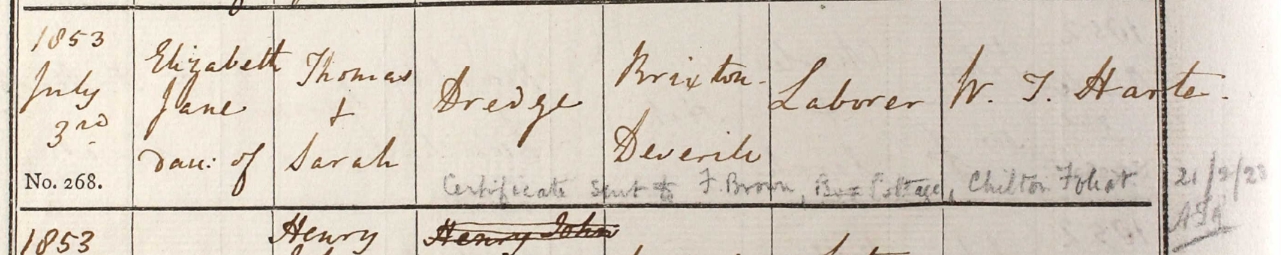 1853
July
3rd
No. 268.
Elizabeth
Jane
dau: of
Thomas
&
Sarah
Dredge
Brixton
Deverill
Laborer
W. T. Harte.
Certificate sent to F. Brown, Box Cottage, Chilton Foliat
21/2/23
1853
Henry
Henry John